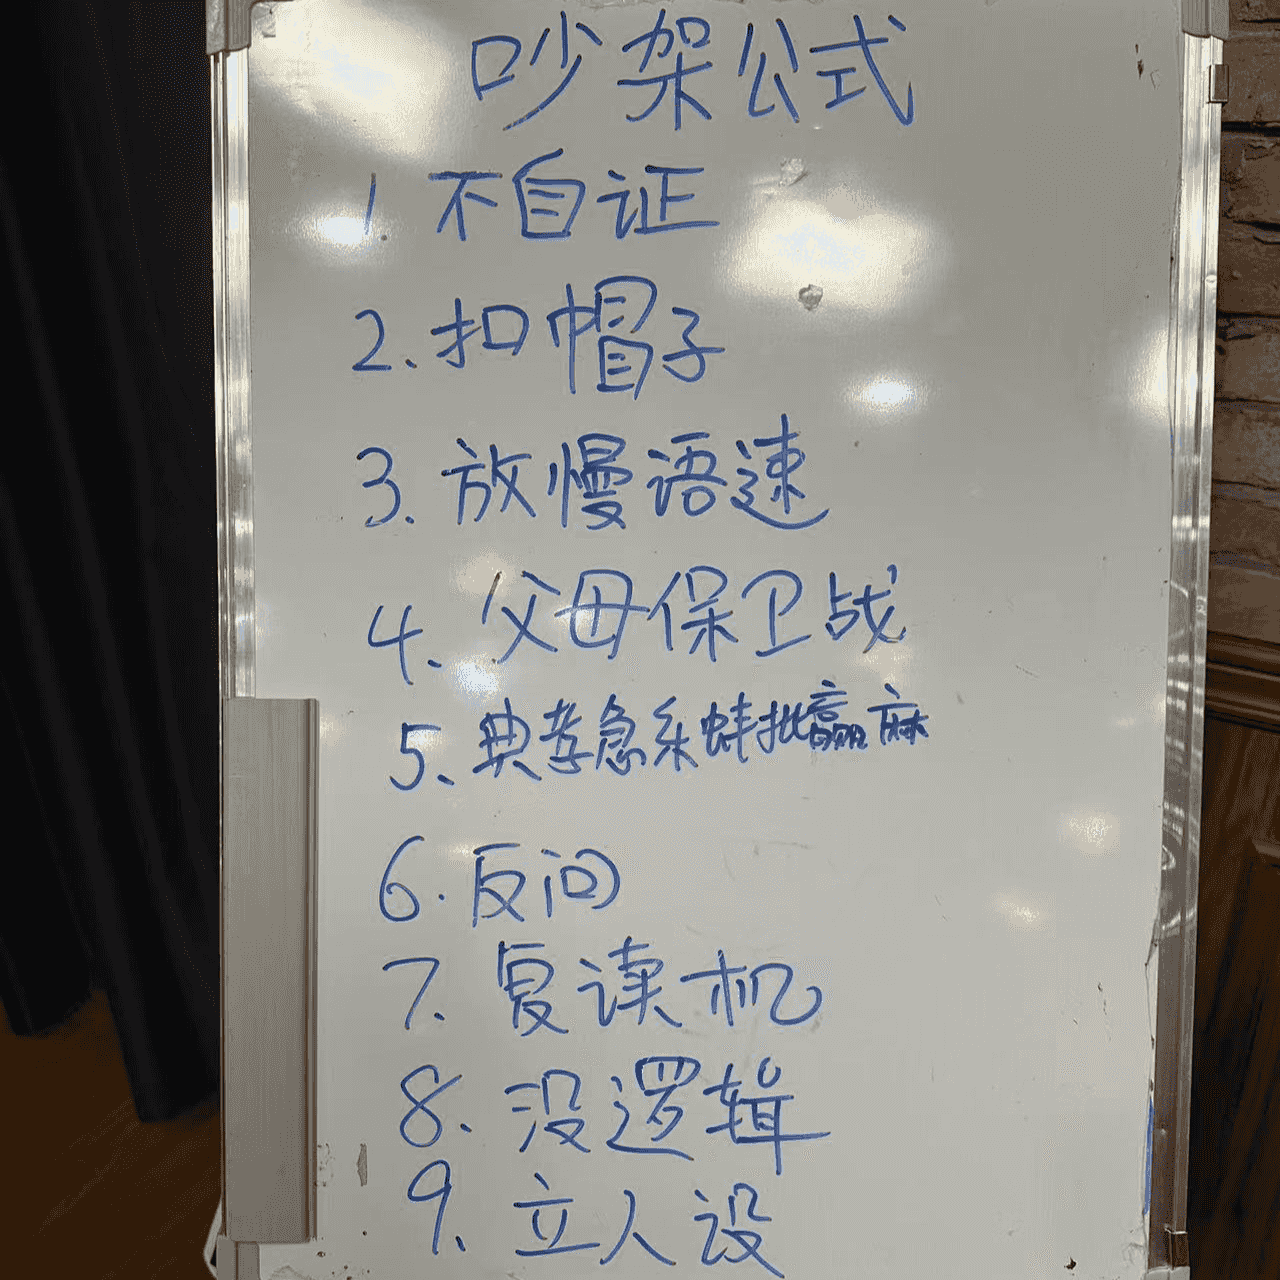 吵架公式
1. 不自证
2. 扣帽子
3. 放慢语速
4. 父母保卫战
5. 典孝急乐蚌批赢麻
6. 反问
7. 复读机
8. 没逻辑
9. 立人设